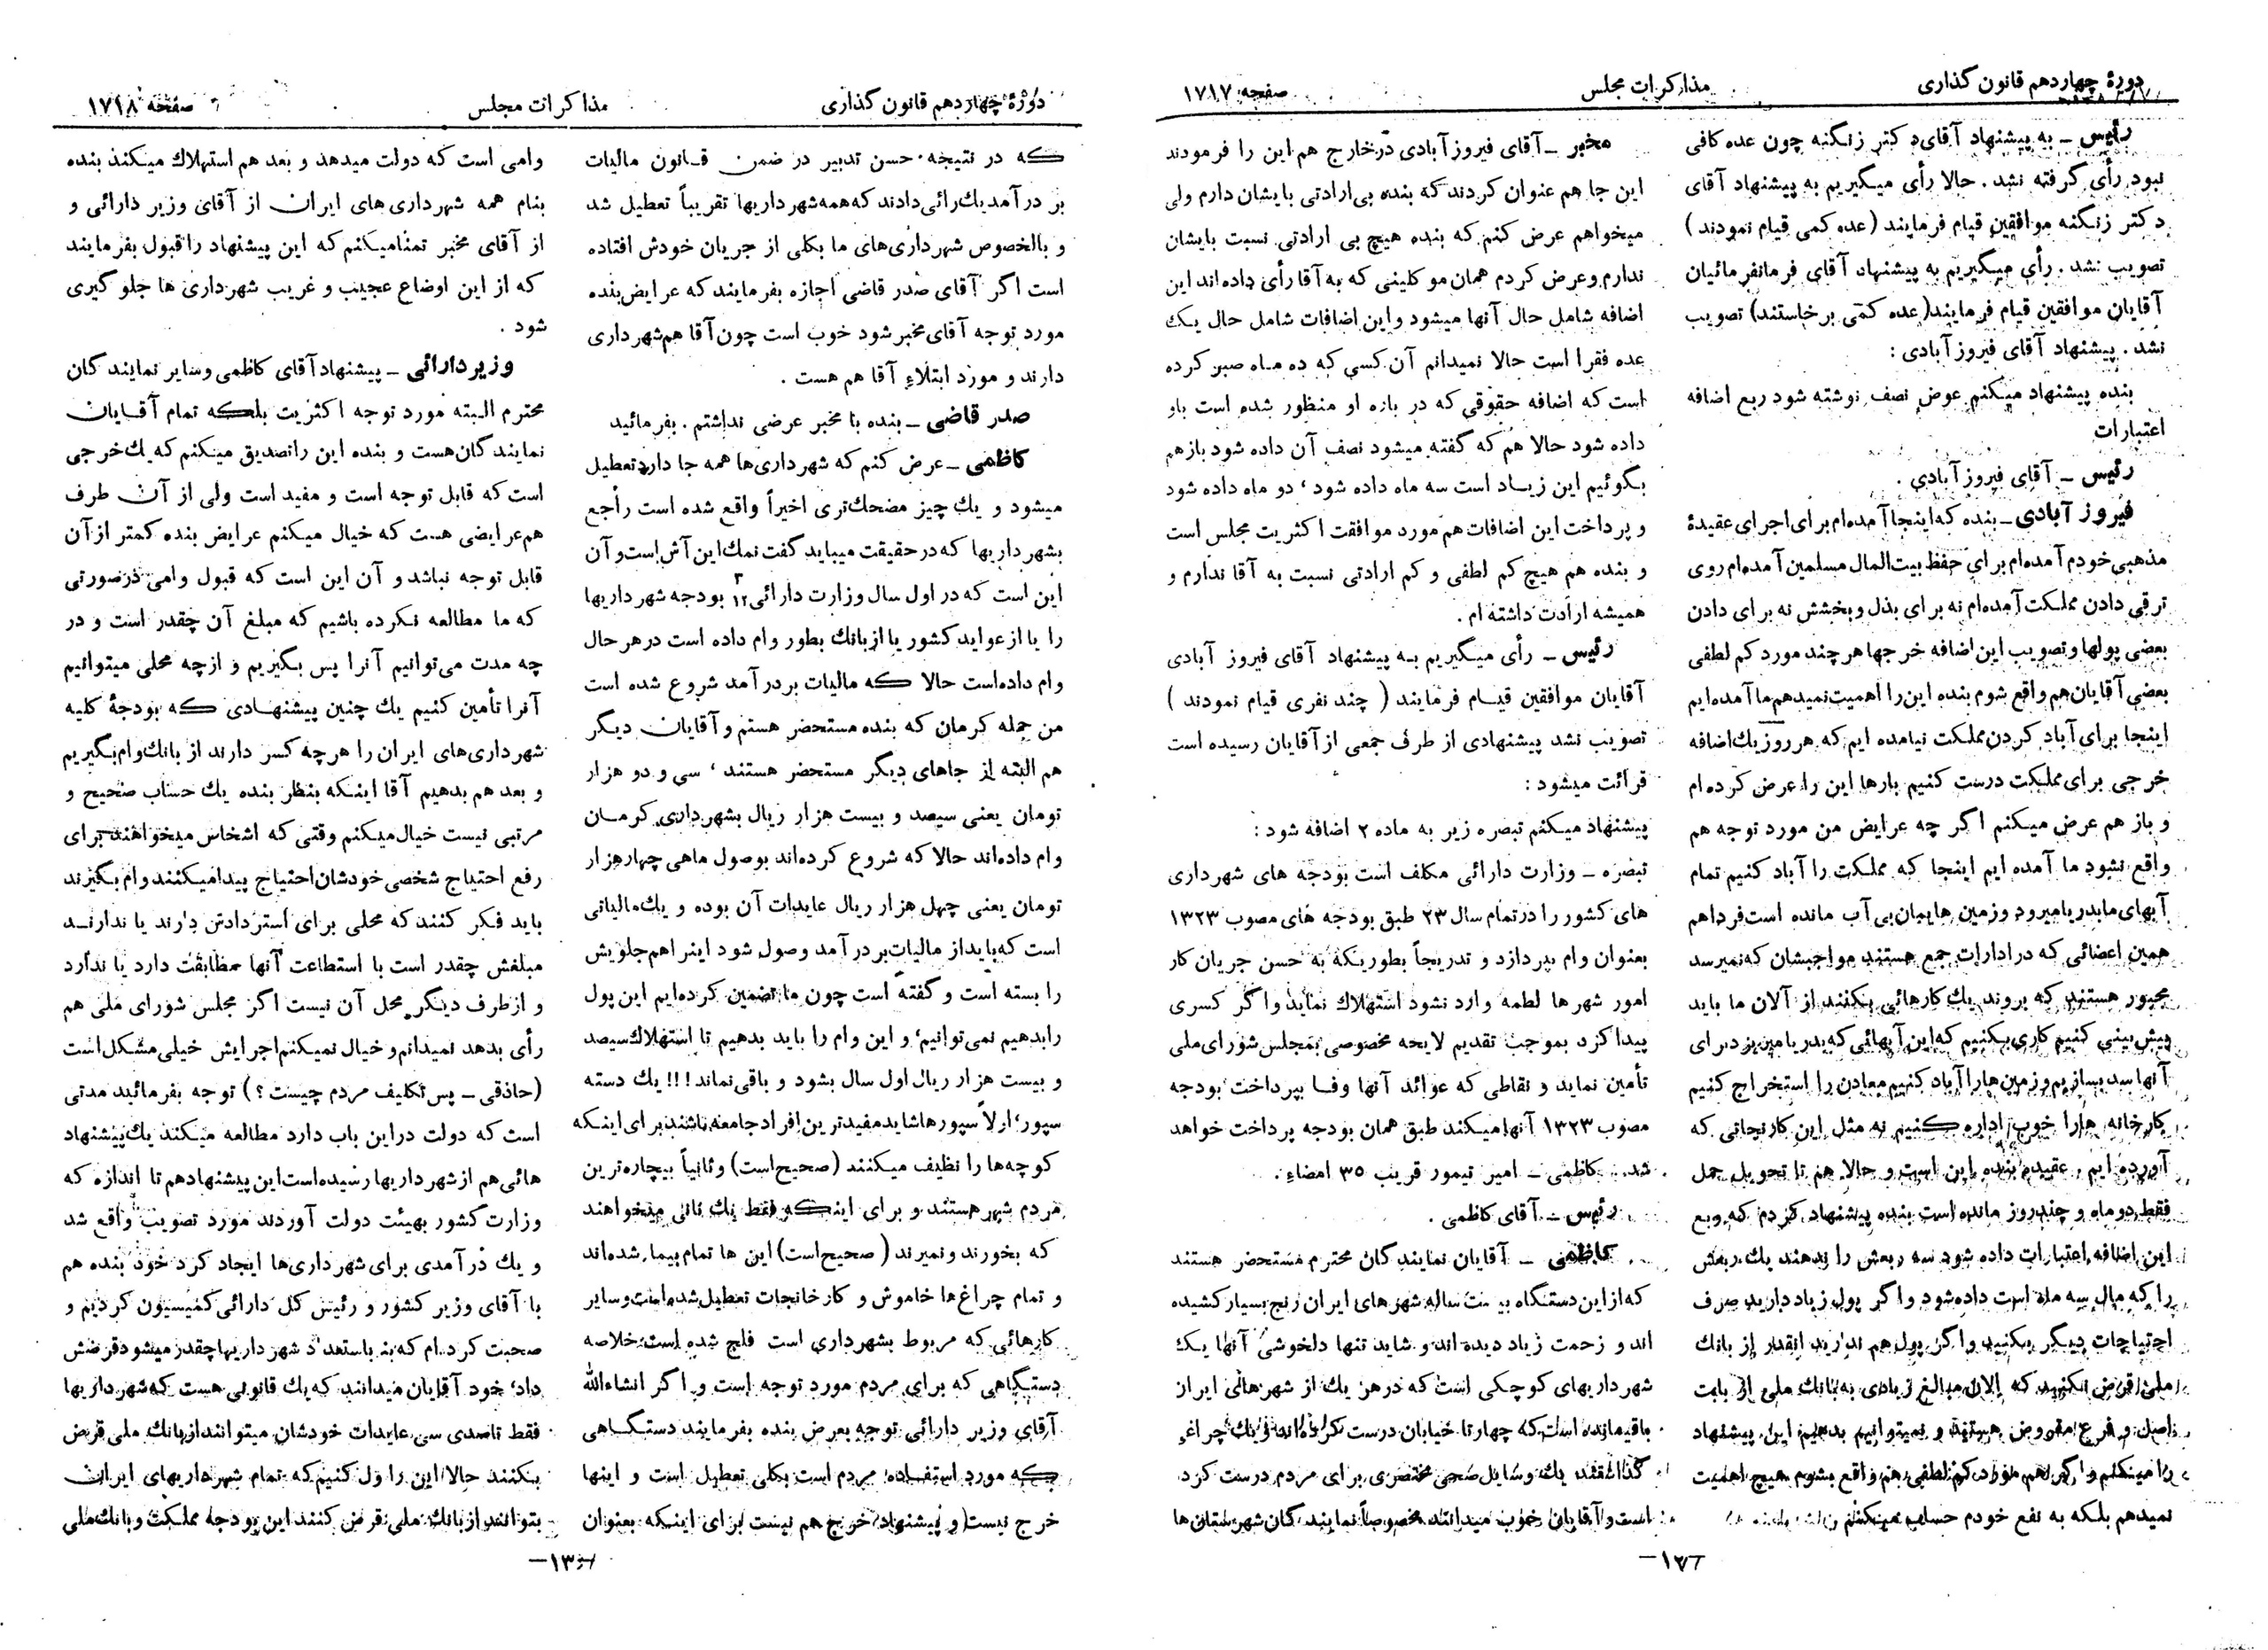 دورهٔ چهاردهم قانون گذاری
مذاکرات مجلس
صفحه ۱۷۱۷
رئیس ــ به پیشنهاد آقای دکتر زنگنه چون عده کافی
نبود رأی گرفته نشد . حالا رأی میگیریم به پیشنهاد آقای
دکتر زنگنه موافقین قیام فرمایند (عده کمی قیام نمودند )
تصویب نشد . رأی میگیریم به پیشنهاد آقای فرمانفرمائیان
آقایان موافقین قیام فرمایند (عده کمی برخاستند) تصویب
نشد . پیشنهاد آقای فیروزآبادی :
بنده پیشنهاد میکنم عوض نصف نوشته شود ربع اضافه
اعتبارات
رئیس ــ آقای فیروزآبادی .
فیروزآبادی ــ بنده که اینجا آمده‌ام برای اجرای عقیدهٔ
مذهبی خودم آمده‌ام برای حفظ بیت‌المال مسلمین آمده‌ام روی
ترقی دادن مملکت آمده‌ام نه برای بذل و بخشش نه برای دادن
بعضی پولها و تصویب این اضافه خرجها هرچند مورد کم لطفی
بعضی آقایان هم واقع شوم بنده این را اهمیت نمیدهم ما آمده‌ایم
اینجا برای آباد کردن مملکت نیامده ایم که هر روز یك اضافه
خرجی برای مملکت درست کنیم بارها این را عرض کرده‌ام
و باز هم عرض میکنم اگر چه عرایض من مورد توجه هم
واقع نشود ما آمده ایم اینجا که مملکت را آباد کنیم تمام
آبهای ما بدریا میرود و زمین هایمان بی آب مانده است فردا هم
همین اعضائی که در ادارات جمع هستند مواجبشان که نمیرسد
مجبور هستند که بروند یك کارهائی بکنند از آلان ما باید
پیش بینی کنیم کاری بکنیم که این آبهائی که بدریا میریزد برای
آنها سد بسازیم و زمین هارا آباد کنیم معادن را استخراج کنیم
کارخانه هارا خوب اداره کنیم نه مثل این کارنجاتی که
آورده ایم . عقیده بنده این است و حالا هم تا تحویل حمل
فقط دو ماه و چند روز مانده است بنده پیشنهاد کردم که ربع
این اضافه اعتبارات داده شود سه ربعش را ندهند یك ربعش
را که مال سه ماه است داده شود و اگر پول زیاد دارید صرف
احتیاجات دیگر بکنید و اگر پول هم ندارید انقدر از بانك
ملی قرض نکنید که الان مبالغ زیادی به بانك ملی از بابت
اصل و فرع مقروض هستند و نمیتوانیم بدهیم این پیشنهاد
را میکنم و اگر هم مورد کم لطفی هم واقع بشوم هیچ اهمیت
نمیدهم بلکه به نفع خودم حساب میکنم
مخبر ــ آقای فیروزآبادی در خارج هم این را فرمودند
این جا هم عنوان کردند که بنده بی‌ارادتی بایشان دارم ولی
میخواهم عرض کنم که بنده هیچ بی ارادتی نسبت بایشان
ندارم و عرض کردم همان موکلینی که به آقا رأی داده‌اند این
اضافه شامل حال آنها میشود و این اضافات شامل حال یك
عده فقرا است حالا نمیدانم آن کسی که ده ماه صبر کرده
است که اضافه حقوقی که در باره او منظور شده است باو
داده شود حالا هم که گفته میشود نصف آن داده شود بازهم
بگوئیم این زیاد است سه ماه داده شود ، دو ماه داده شود
و پرداخت این اضافات هم مورد موافقت اکثریت مجلس است
و بنده هم هیچ کم لطفی و کم ارادتی نسبت به آقا ندارم و
همیشه ارادت داشته ام .
رئیس ــ رأی میگیریم به پیشنهاد آقای فیروز آبادی
آقایان موافقین قیام فرمایند ( چند نفری قیام نمودند )
تصویب نشد پیشنهادی از طرف جمعی از آقایان رسیده است
قرائت میشود :
پیشنهاد میکنم تبصره زیر به ماده ۲ اضافه شود :
تبصره ــ وزارت دارائی مکلف است بودجه های شهرداری
های کشور را در تمام سال ۲۳ طبق بودجه های مصوب ۱۳۲۳
بعنوان وام بپردازد و تدریجاً بطوریکه به حسن جریان کار
امور شهرها لطمه وارد نشود استهلاك نماید و اگر کسری
پیدا کرد بموجب تقدیم لایحه مخصوصی بمجلس شورای ملی
تأمین نماید و نقاطی که عوائد آنها وفا بپرداخت بودجه
مصوب ۱۳۲۳ آنها میکند طبق همان بودجه پرداخت خواهد
شد . کاظمی ــ امیر تیمور قریب ۳۵ امضاء .
رئیس ــ آقای کاظمی .
کاظمی ــ آقایان نمایندگان محترم مستحضر هستند
که از این دستگاه بیست ساله شهرهای ایران رنج بسیار کشیده
اند و زحمت زیاد دیده اند و شاید تنها دلخوشی آنها یك
شهرداریهای کوچکی است که در هر یك از شهرهای ایران
باقیمانده است که چهارتا خیابان درست کرده‌اند و یك چراغ
گذاشتند یك وسایل صحی مختصری برای مردم درست کرده
است و آقایان خوب میدانند مخصوصاً نمایندگان شهرستان ها
ــ۱۲ــ
دورهٔ چهاردهم قانون گذاری
مذاکرات مجلس
صفحه ۱۷۱۸
که در نتیجه حسن تدبیر در ضمن قانون مالیات
بر درآمد یك رائی دادند که همه شهرداریها تقریباً تعطیل شد
و بالخصوص شهرداری‌های ما بکلی از جریان خودش افتاده
است اگر آقای صدر قاضی اجازه بفرمایند که عرایض بنده
مورد توجه آقای مخبر شود خوب است چون آقا هم شهرداری
دارند و مورد ابتلاء آقا هم هست .
صدر قاضی ــ بنده با مخبر عرضی نداشتم . بفرمائید
کاظمی ــ عرض کنم که شهرداری‌ها همه جا دارد تعطیل
میشود و یك چیز مضحك‌تری اخیراً واقع شده است راجع
بشهرداریها که در حقیقت میباید گفت نمك این آش است و آن
این است که در اول سال وزارت دارائی ۳/۱۲ بودجه شهرداریها
را یا از عواید کشور یا از بانك بطور وام داده است در هر حال
وام داده‌است حالا که مالیات بر درآمد شروع شده است
من جمله کرمان که بنده مستحضر هستم و آقایان دیگر
هم البته از جاهای دیگر مستحضر هستند ، سی و دو هزار
تومان یعنی سیصد و بیست هزار ریال بشهرداری کرمان
وام داده‌اند حالا که شروع کرده‌اند بوصول ماهی چهارهزار
تومان یعنی چهل هزار ریال عایدات آن بوده و یك مالیاتی
است که باید از مالیات بر درآمد وصول شود اینرا هم جلویش
را بسته است و گفته است چون ما تضمین کرده‌ایم این پول
را بدهیم نمی توانیم ، و این وام را باید بدهیم تا استهلاك سیصد
و بیست هزار ریال اول سال بشود و باقی نماند ! !! یك دسته
سپور ، اولاً سپورها شاید مفیدترین افراد جامعه باشند برای اینکه
کوچه‌ها را نظیف میکنند (صحیح است) و ثانیاً بیچاره‌ترین
مردم شهر هستند و برای اینکه فقط یك نانی میخواهند
که بخورند و نمیرند ( صحیح است) این ها تمام بیمار شده‌اند
و تمام چراغ‌ها خاموش و کارخانجات تعطیل شده‌است و سایر
کارهائی که مربوط بشهرداری است فلج شده است ، خلاصه
دستگاهی که برای مردم مورد توجه است و اگر انشاءالله
آقای وزیر دارائی توجه بعرض بنده بفرمایند دستگاهی
که مورد استفاده مردم است بکلی تعطیل است و اینها
خرج نیست و پیشنهاد خرج هم نیست برای اینکه بعنوان
وامی است که دولت میدهد و بعد هم استهلاك میکند بنده
بنام همه شهرداری های ایران از آقای وزیر دارائی و
از آقای مخبر تمنا میکنم که این پیشنهاد را قبول بفرمایند
که از این اوضاع عجیب و غریب شهرداری ها جلوگیری
شود .
وزیر دارائی ــ پیشنهاد آقای کاظمی و سایر نمایندگان
محترم البته مورد توجه اکثریت بلکه تمام آقایان
نمایندگان هست و بنده این را تصدیق میکنم که یك خرجی
است که قابل توجه است و مفید است ولی از آن طرف
هم عرایضی هست که خیال میکنم عرایض بنده کمتر از آن
قابل توجه نباشد و آن این است که قبول وامی در صورتی
که ما مطالعه نکرده باشیم که مبلغ آن چقدر است و در
چه مدت می‌توانیم آنرا پس بگیریم و از چه محلی میتوانیم
آنرا تأمین کنیم یك چنین پیشنهادی که بودجهٔ کلیه
شهرداری‌های ایران را هر چه کسر دارند از بانك وام بگیریم
و بعد هم بدهیم آقا اینکه بنظر بنده یك حساب صحیح و
مرتبی نیست خیال میکنم وقتی که اشخاص میخواهند برای
رفع احتیاج شخصی خودشان احتیاج پیدا میکنند وام بگیرند
باید فکر کنند که محلی برای استردادش دارند یا ندارند
مبلغش چقدر است با استطاعت آنها مطابقت دارد یا ندارد
و از طرف دیگر محل آن نیست اگر مجلس شورای ملی هم
رأی بدهد نمیدانم و خیال نمیکنم اجرایش خیلی مشکل است
(حاذقی ــ پس تکلیف مردم چیست ؟) توجه بفرمائید مدتی
است که دولت در این باب دارد مطالعه میکند یك پیشنهاد
هائی هم از شهرداریها رسیده است این پیشنهاد هم تا اندازه که
وزارت کشور بهیئت دولت آوردند مورد تصویب واقع شد
و یك درآمدی برای شهرداری‌ها ایجاد کرد خود بنده هم
با آقای وزیر کشور و رئیس کل دارائی کمیسیون کردیم و
صحبت کرده‌ام که بنا باستعداد شهرداریها چقدر میشود قرضش
داد ، خود آقایان میدانند که یك قانونی هست که شهرداریها
فقط تا صدی سی عایدات خودشان میتوانند از بانك ملی قرض
بکنند حالا این را ول کنیم که تمام شهرداریهای ایران
بتوانند از بانك ملی قرض کنند این بودجه مملکت و بانك ملی
ــ۱۳ــ